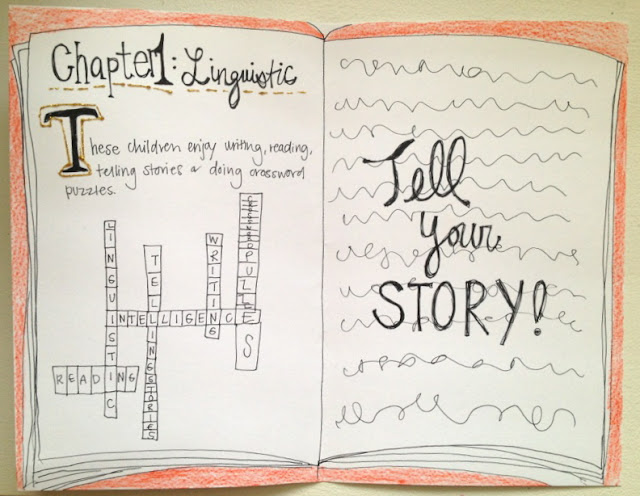 Chapter 1: Linguistic
These children enjoy writing, reading,
telling stories & doing crossword
puzzles.
LINGUISTIC
TELLINGSTORIES
WRITING
INTELLIGENCE
READING
Tell
Your
STORY!